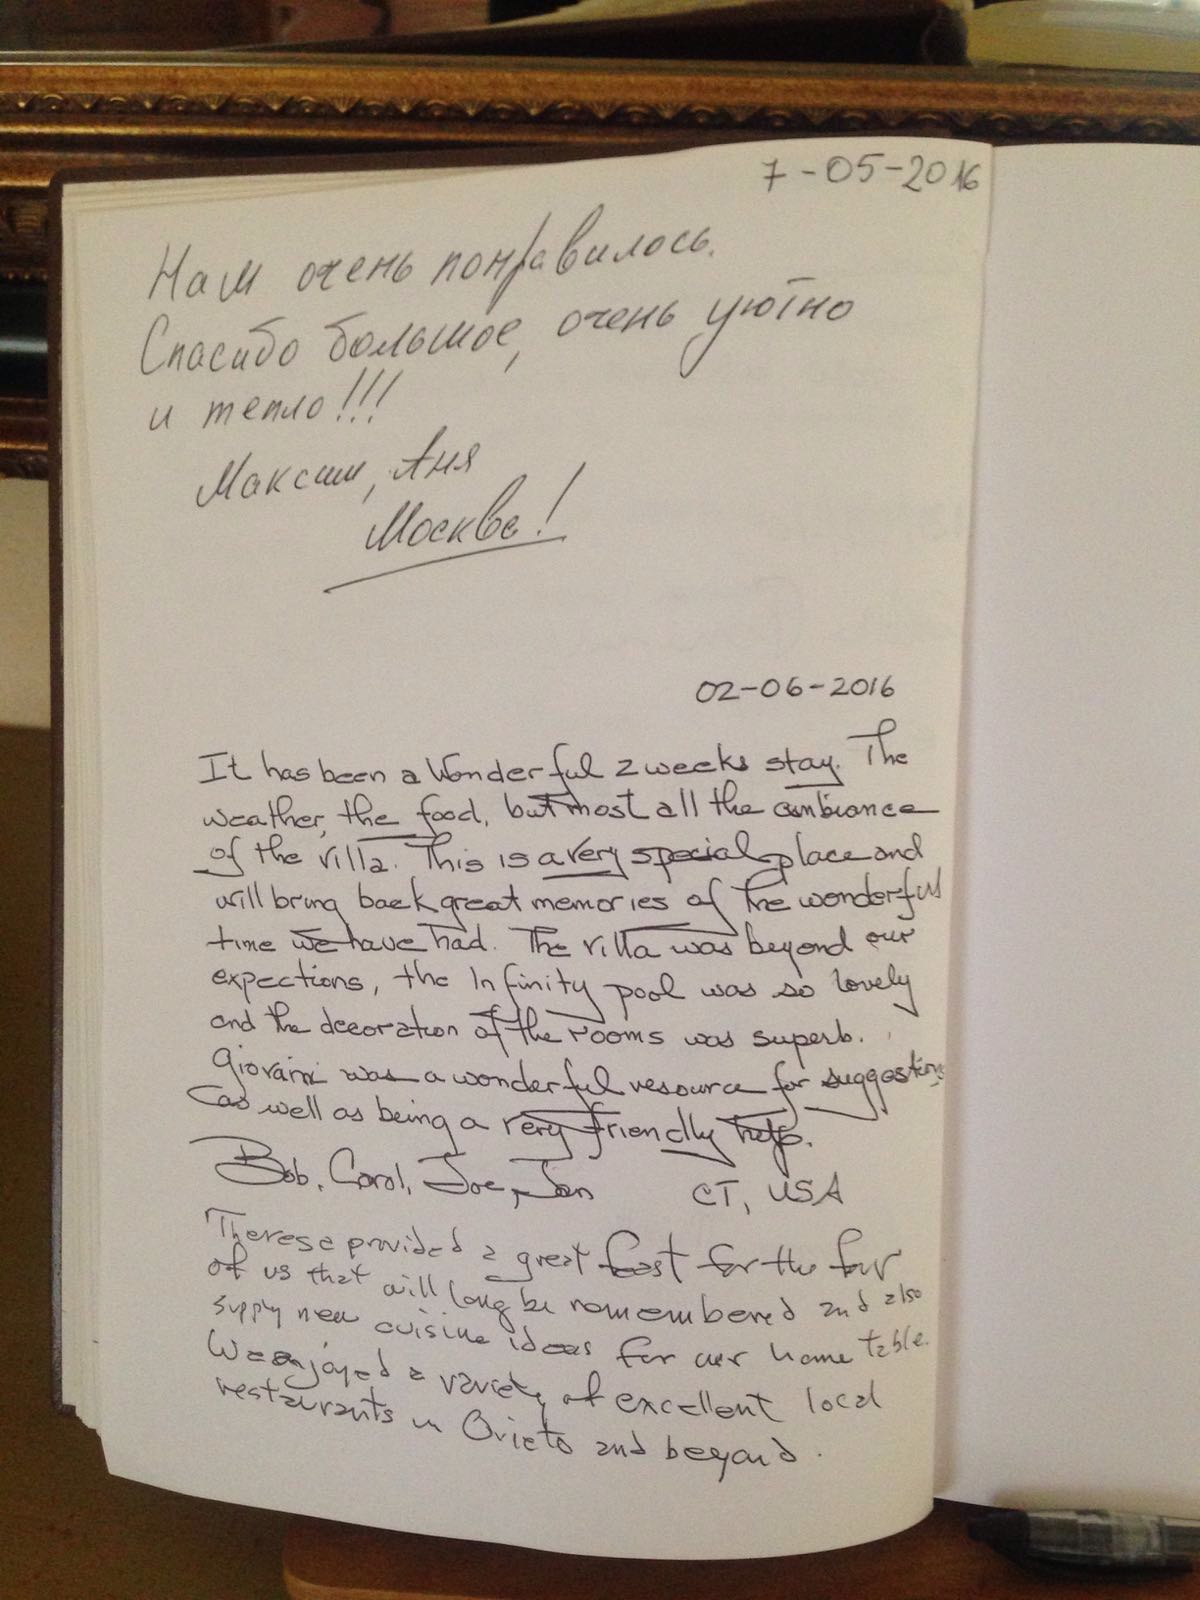 7-05-2016
Нам очень понравилось.
Спасибо большое, очень уютно
и тепло!!!
Максим, Аня
Москва!
02-06-2016
It has been a Wonderful 2 weeks stay. The
weather, the food, but most all the ambiance
of the villa. This is a very special place and
will bring back great memories of the wonderful
time we have had. The villa was beyond our
expections, the Infinity pool was so lovely
and the decoration of the rooms was superb.
Giovanni was a wonderful resource for suggestions
as well as being a very friendly help.
Bob, Carol, Joe, Jan CT, USA
Therese provided a great feast for the four
of us that will long be remembered and also
supply new cuisine ideas for our home table.
We enjoyed a variety of excellent local
restaurants in Orvieto and beyond.